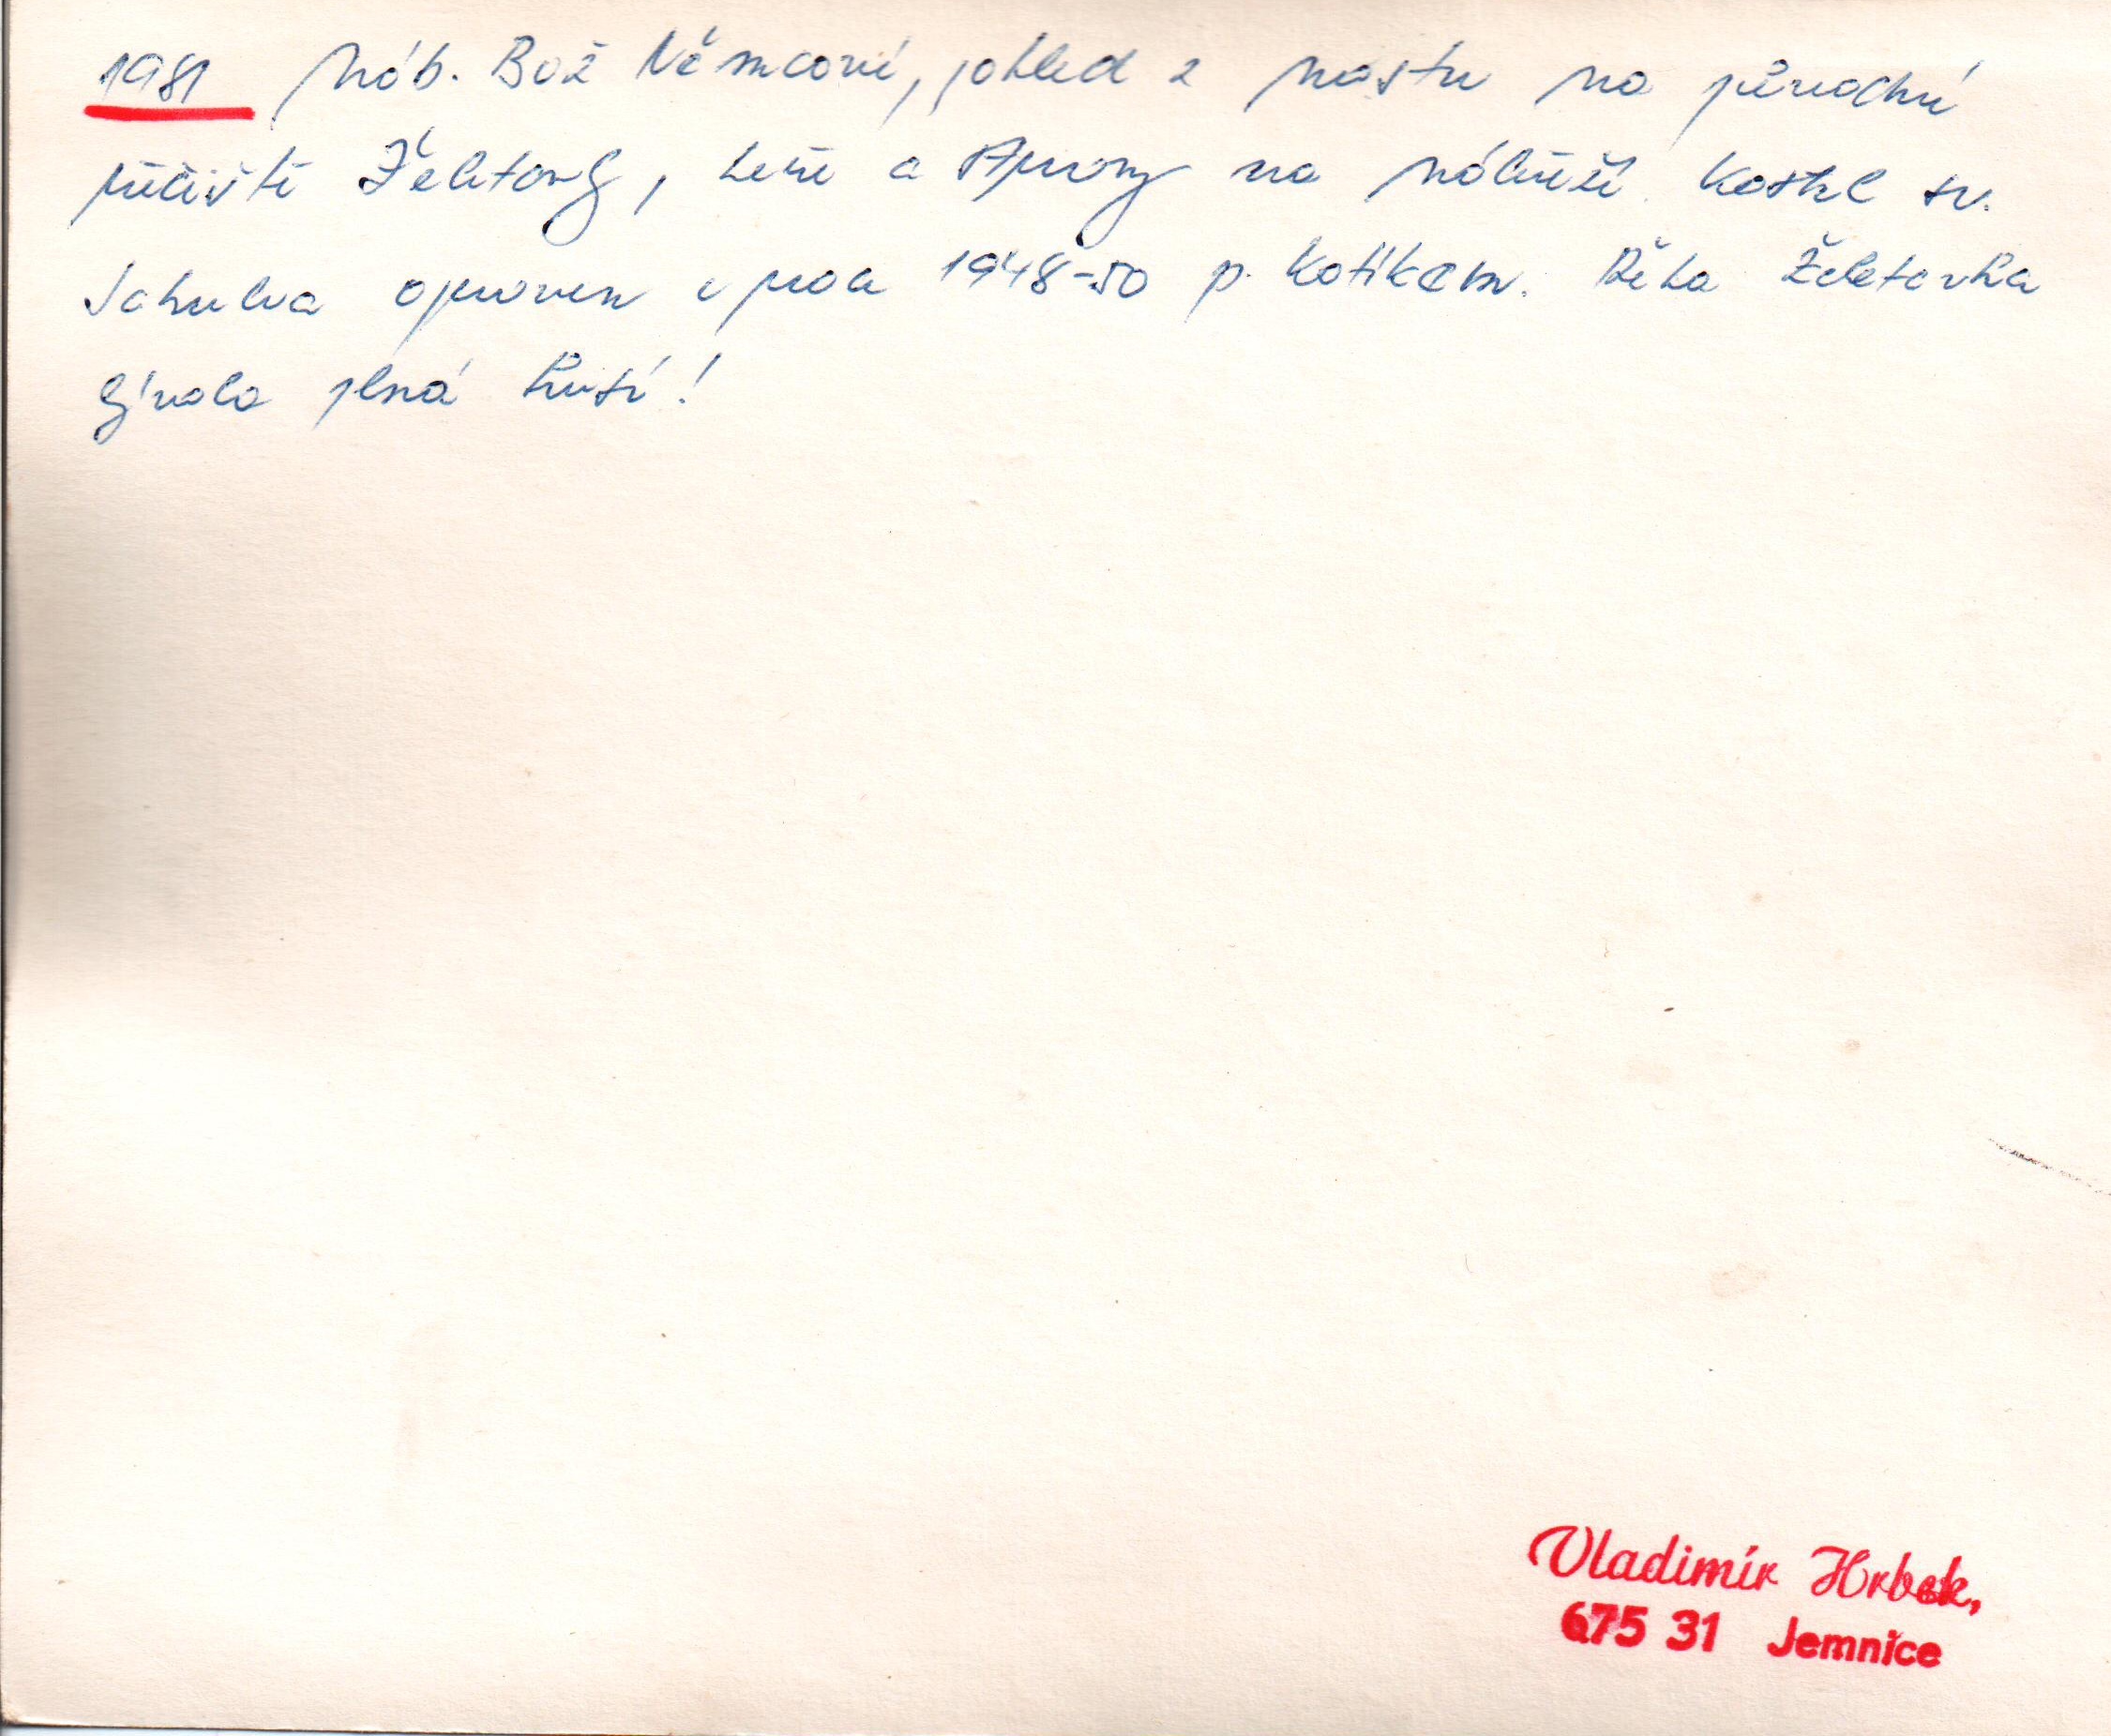 1981 Náb. Bož Němcové, pohled z mostu na původní
řečiště Želetavky, keře a stromy na nábřeží. Kostel sv.
Jakuba opraven v roce 1948-50 p. Kotíkem. Řeka Želetavka
bývala plná husí!
Vladimír Hrbek,
675 31 Jemnice